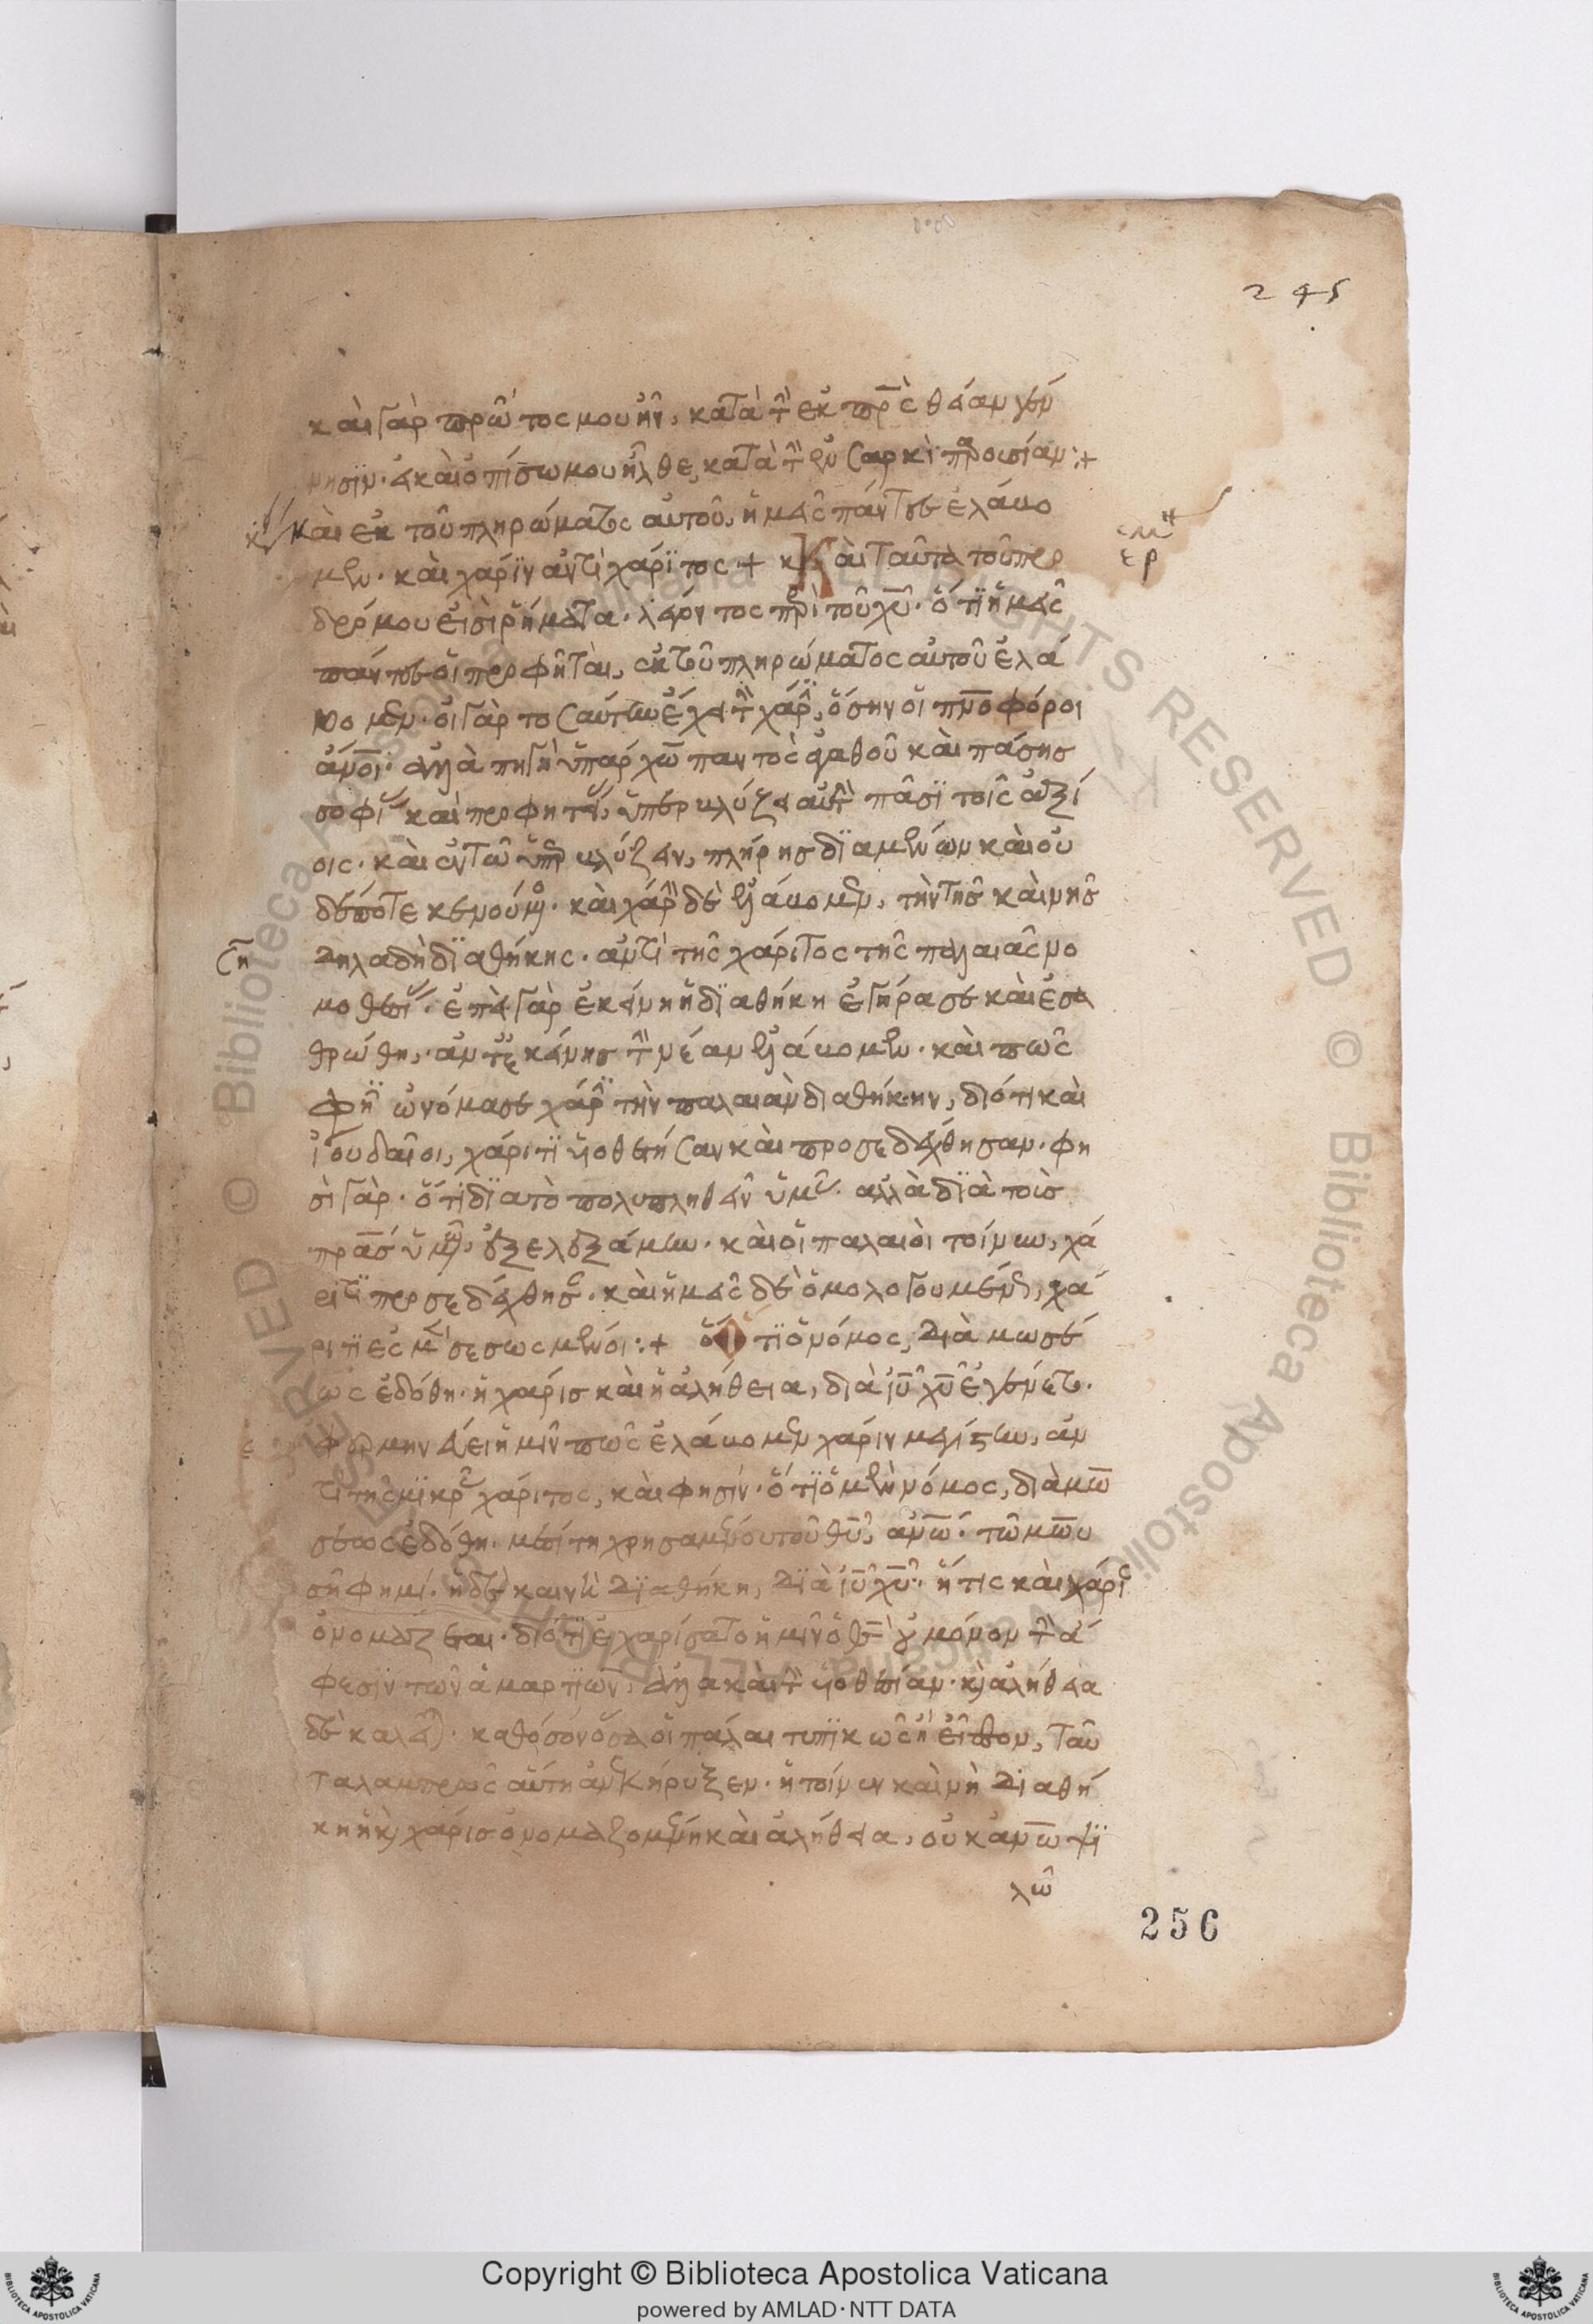 245
καὶ γὰρ πρῶτός μου ἦν, κατὰ τ(ὴν) ἐκ πρ̅ς θείαν γέν
νησϊν· εἰ καὶ ὀπίσω μου ἦλθε, κατὰ τ(ὴν) ἐν σαρκὶ παρουσίαν :+
καὶ ἐκ τοῦ πληρώματος αὐτοῦ, ἡμεῖς πάντες ἐλάβο
μεν· καὶ χάρϊν ἀντὶ χάρϊτος + Καὶ ταῦτα τοῦ προ
δρόμου εἰσὶ ῥήματα· λέγοντος περὶ τοῦ χυ̅· ὅτϊ ἡμεῖς
πάντες οἱ προφῆται, ἐκ τοῦ πληρώματος αὐτοῦ ἐλά
βομεν· οὐ γὰρ τοσαύτην ἔχει τ(ὴν) χάρϊν, ὅσην οἱ πν̅οφόροι
ἄνο̅ι· ἀλλὰ πηγὴ ὑπάρχων παντὸς ἀγαθοῦ καὶ πάσης
σοφίας καὶ προφητείας, ὑπερβλύζει αὐτὴν πᾶσϊ τοῖς ἀξί
οις· καὶ ἐν τῶ ὑπερβλύζειν, πλήρης δϊαμένων καὶ οὐ
δέποτε κενούμενος· καὶ χάριν δὲ ἐλάβομεν, τὴν τῆς καινῆς
δηλαδὴ δϊαθήκης· ἀντὶ τῆς χάριτος τῆς παλαιᾶς νο
μοθεσίας· ἐπεὶ γὰρ ἐκείνη ἡ δϊαθήκη ἐγήρασε καὶ ἐσα
θρώθη, ἀντ' ἐκείνης τ(ὴν) νέαν ἐλάβομεν· καὶ πῶς
φη(σὶν) ὠνόμασε χάρϊν τὴν παλαιὰν διαθήκην, διότι καὶ
ἰουδαῖοι, χάριτϊ υἱοθετήσαν καὶ προσεδέχθησαν· φη
σὶ γὰρ· ὅτι δϊὰ τὸ πολυπληθεῖν ὑμᾶς· ἀλλὰ δϊὰ τοὺς
πρα̅ς ὑμῶν, ἐξελεξάμην· καὶ οἱ παλαιοὶ τοίνυν, χά
ριτϊ προσεδέχθησαν· καὶ ἡμεῖς δὲ ὁμολογουμένως, χά
ριτϊ ἐσμὲν σεσωσμένοι :+ ὅτϊ ὁ νόμος, διὰ μωσέ
ως ἐδόθη· ἡ χάρις καὶ ἡ ἀλήθεια, διὰ ιυ̅ χυ̅ ἐγένετο·
ἑρμηνεύει ἡμῖν πῶς ἐλάβομεν χάριν μεγίστην, ἀν
τὶ τῆς μϊκρᾶς χάριτος, καὶ φησίν· ὅτϊ ὁ μὲν νόμος, διὰ μω̅
σέως ἐδόθη· μεσίτη χρησαμένου τοῦ θυ̅, ἀνω̅· τῶ μω̅υ
σῆ φημι· ἡ δὲ καινὴ δϊαθήκη, δϊὰ ιυ̅ χυ̅· ἥτις καὶ χάρις
ὀνομάζεται· διότϊ ἐχαρίσατο ἡμῖν ὁ θς̅ οὐ μόνον τ(ὴν) ἄ
φεσϊν τῶν ἁμαρτϊῶν, ἀλλὰ καὶ τ(ὴν) υἱοθεσίαν· κ(αὶ) ἀλήθεια
δὲ καλεῖται· καθόσον ὅσα οἱ πάλαι τυπϊκῶς ἢ εἶδον, ταῦ
τα λαμπρῶς αὕτη ἀνεκήρυξεν· ἡ τοίνυν καινὴ διαθή
κη ἡ κ(αὶ) χάρις ὀνομαζομένη καὶ ἀλήθεια, οὐκ ἀνω̅ ψϊ
λῶ
256
Copyright © Biblioteca Apostolica Vaticana
powered by AMLAD·NTT DATA